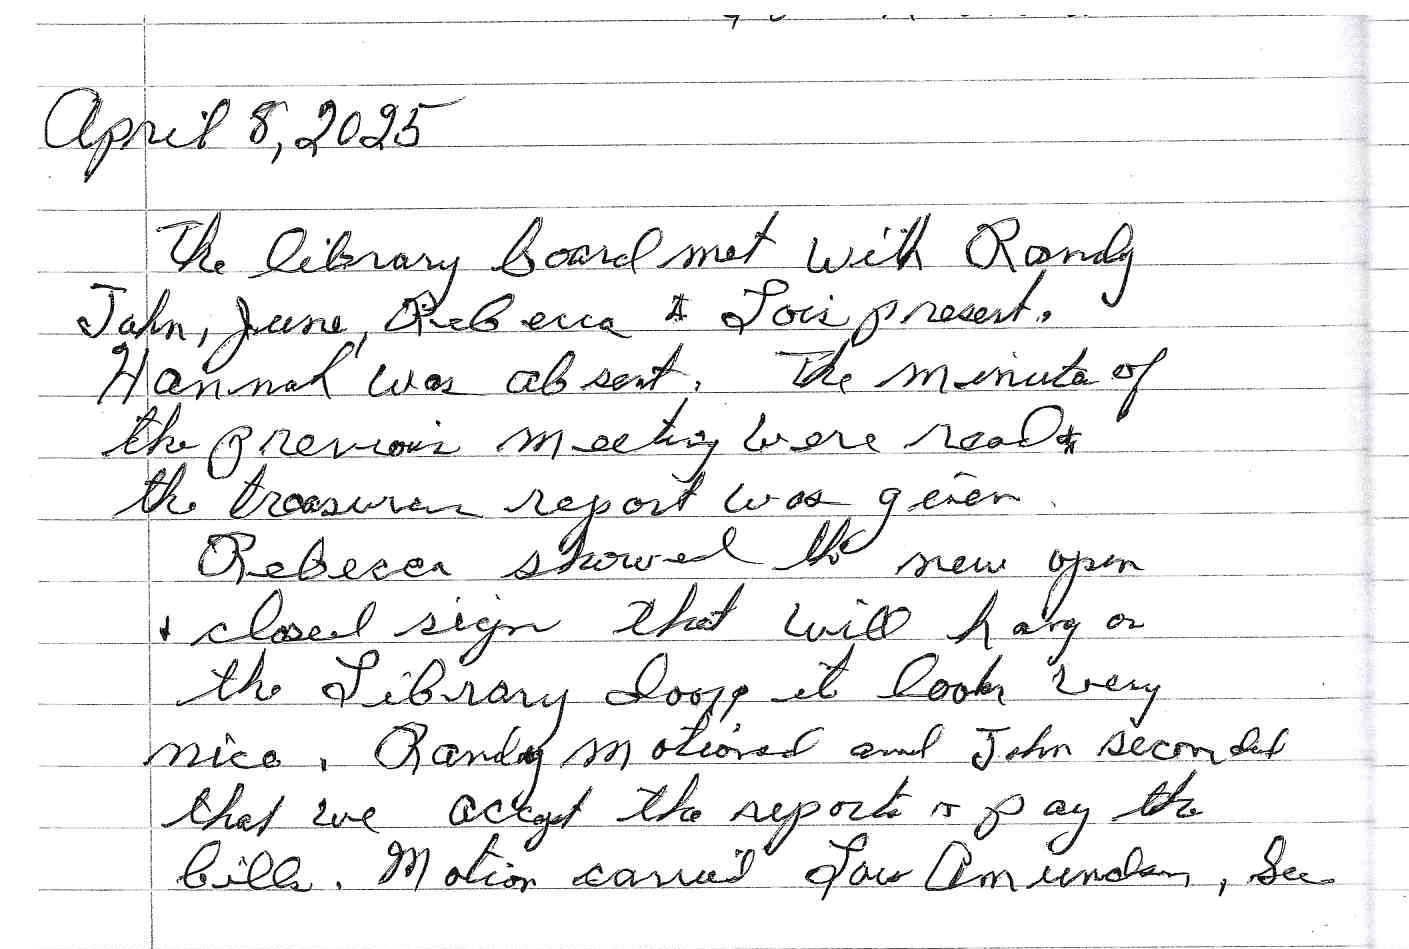 April 8, 2025
The library board met with Randy
John, June, Rebecca & Lois present.
Hannah was absent. The minutes of
the previous meeting were read &
the treasurer report was given.
Rebecca showed the new open
& closed sign that will hang on
the Library door it looks very
nice. Randy motioned and John seconded
that we accept the reports & pay the
bills. Motion carried Lois Amundson, Sec